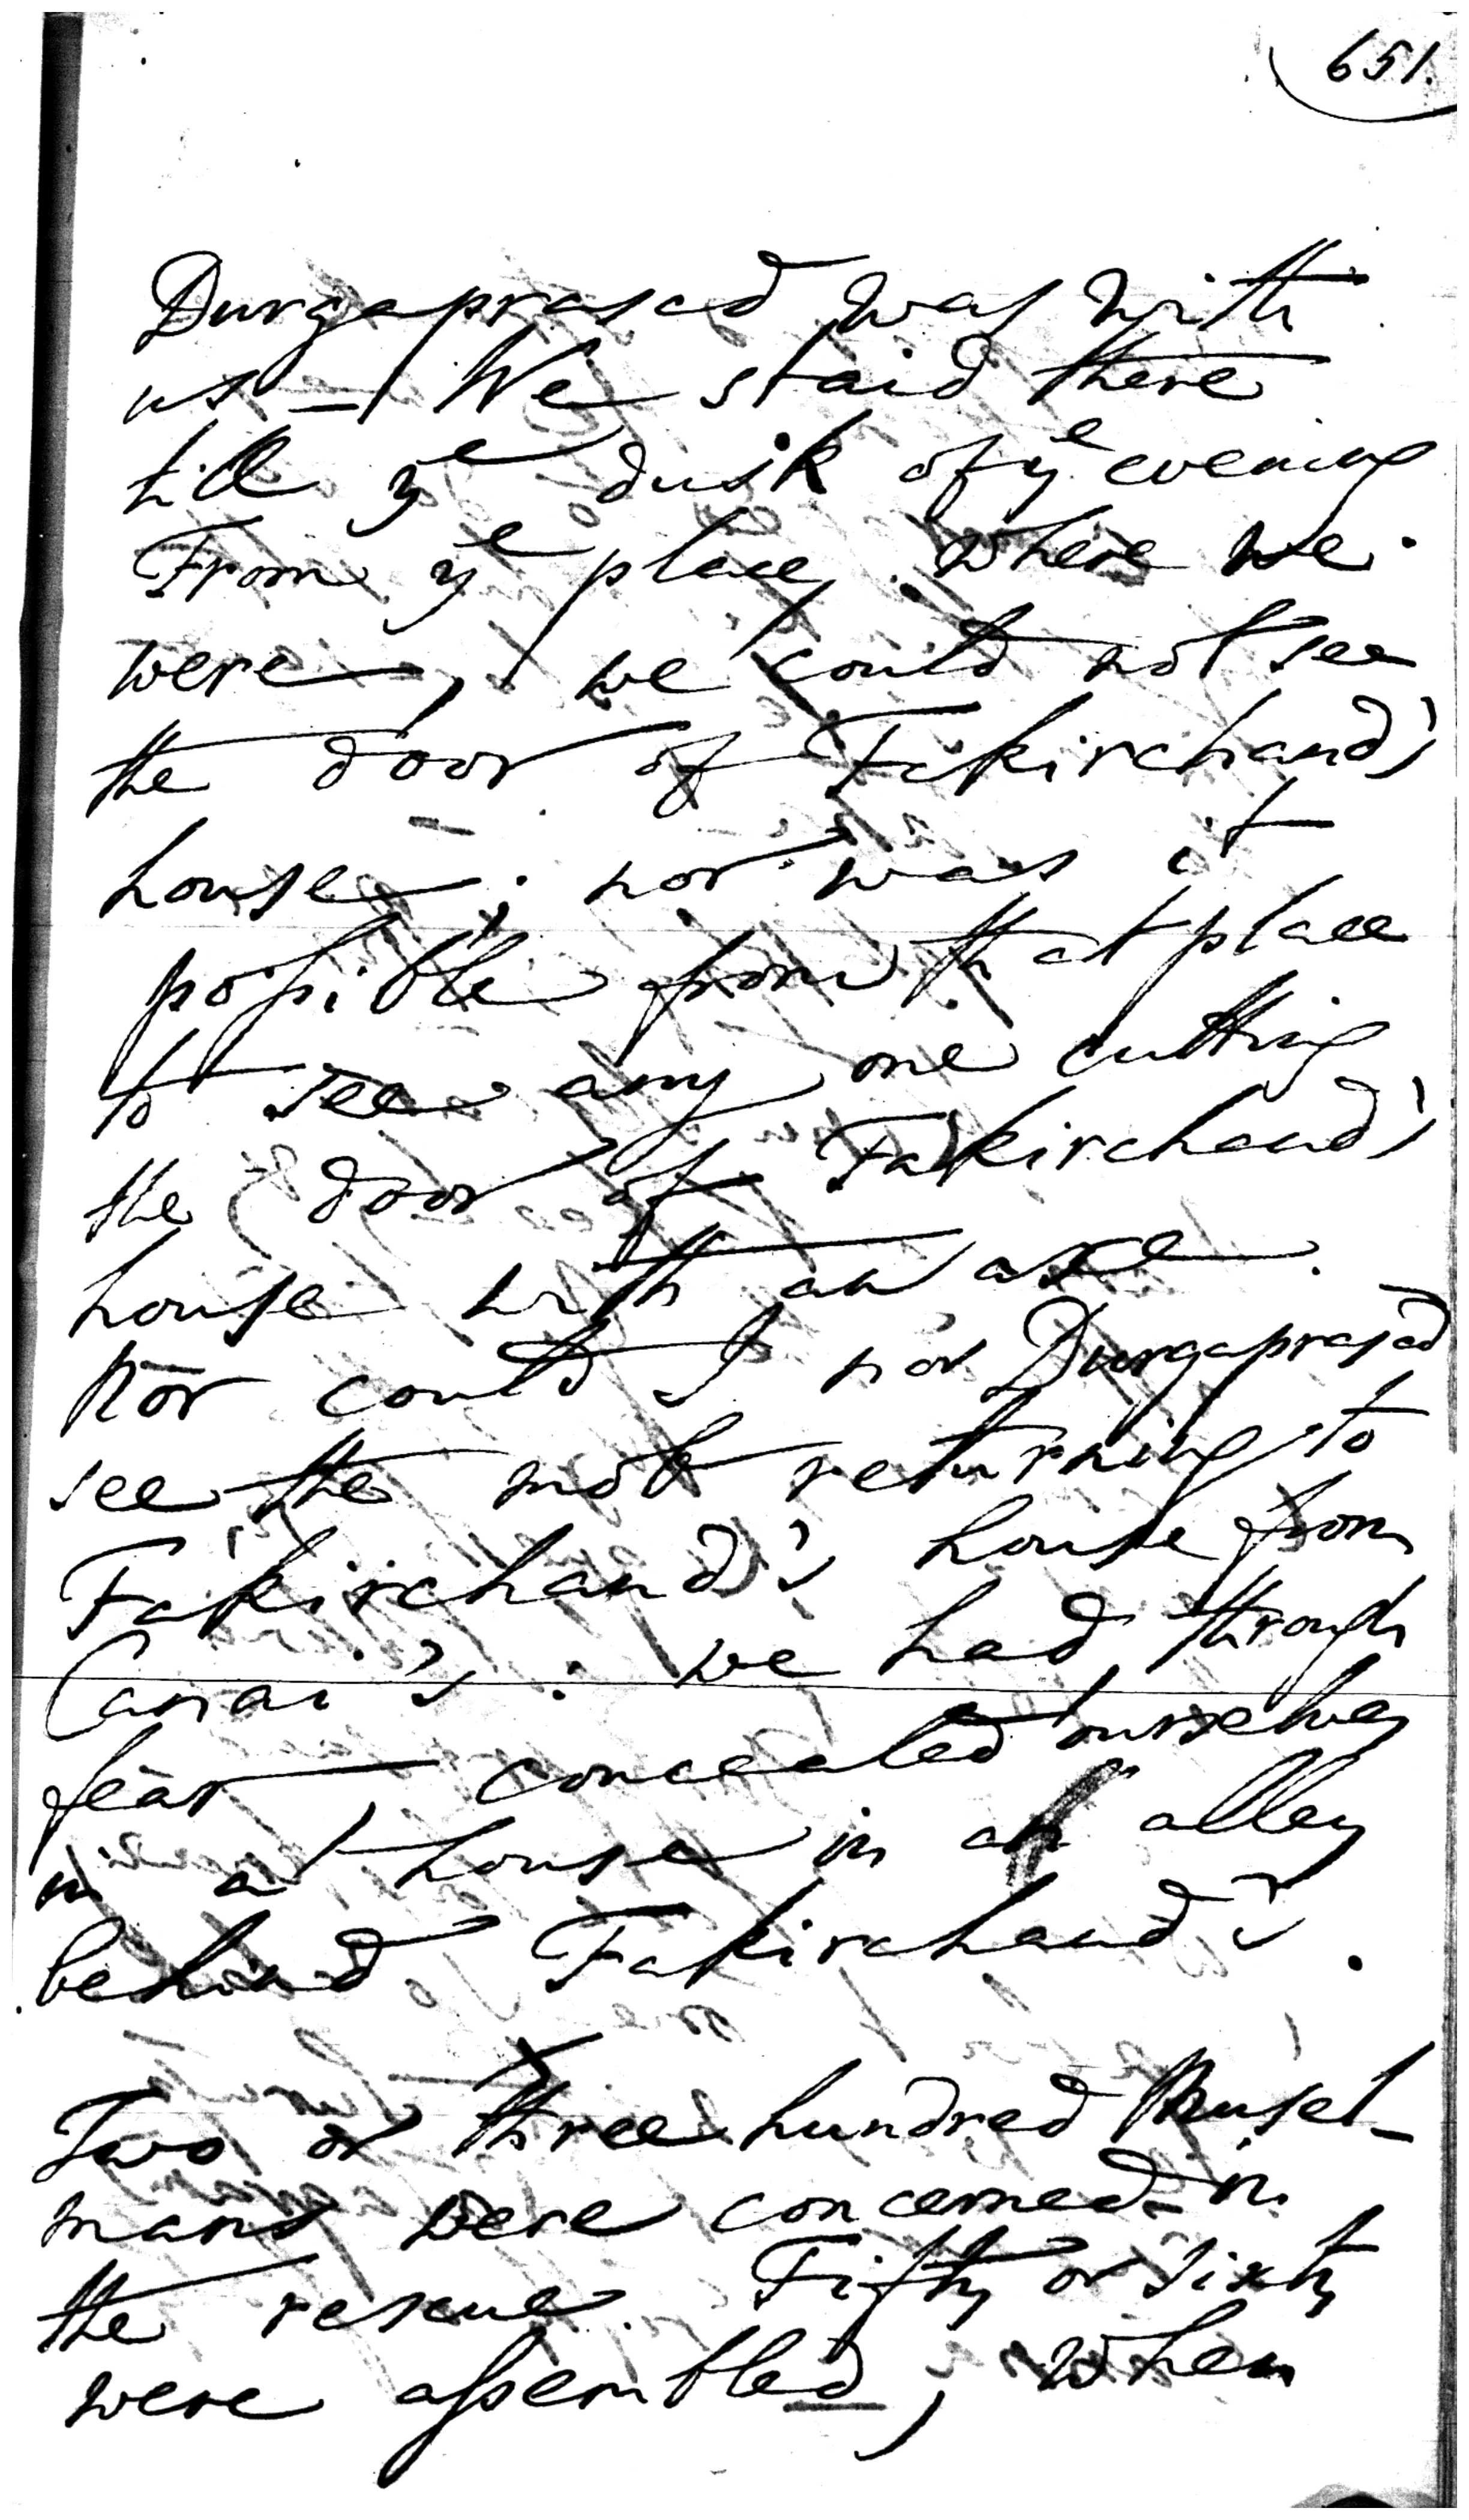 651.
Durgaprasad was with
us — We staid there
till ye dusk of ye evening
From ye place where we
were, we could not see
the door of Fakirchand's
house; nor was it
possible from that place
to see any one cutting
the door of Fakirchand's
house with an axe.
Nor could I nor Durgaprasad
see the mob returning to
Fakirchand's house from
Canai's: we had through
fear concealed ourselves
in a house in an alley
behind Fakirchand's.
Two or three hundred Musel-
mans were concerned in
the rescue. Fifty or sixty
were assembled, when